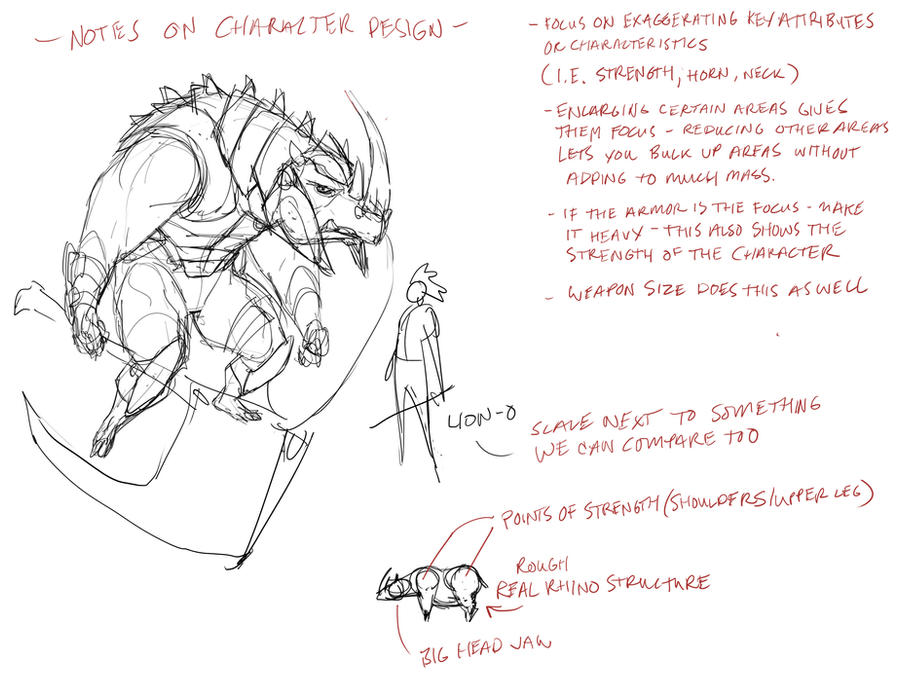 - NOTES ON CHARACTER DESIGN -
- FOCUS ON EXAGGERATING KEY ATTRIBUTES
OR CHARACTERISTICS
(I.E. STRENGTH, HORN, NECK)
- ENLARGING CERTAIN AREAS GIVES
THEM FOCUS - REDUCING OTHER AREAS
LETS YOU BULK UP AREAS WITHOUT
ADDING TO MUCH MASS.
- IF THE ARMOR IS THE FOCUS - MAKE
IT HEAVY - THIS ALSO SHOWS THE
STRENGTH OF THE CHARACTER
- WEAPON SIZE DOES THIS AS WELL
LION-O
SCALE NEXT TO SOMETHING
WE CAN COMPARE TOO
POINTS OF STRENGTH (SHOULDERS/UPPER LEG)
ROUGH
REAL RHINO STRUCTURE
BIG HEAD JAW